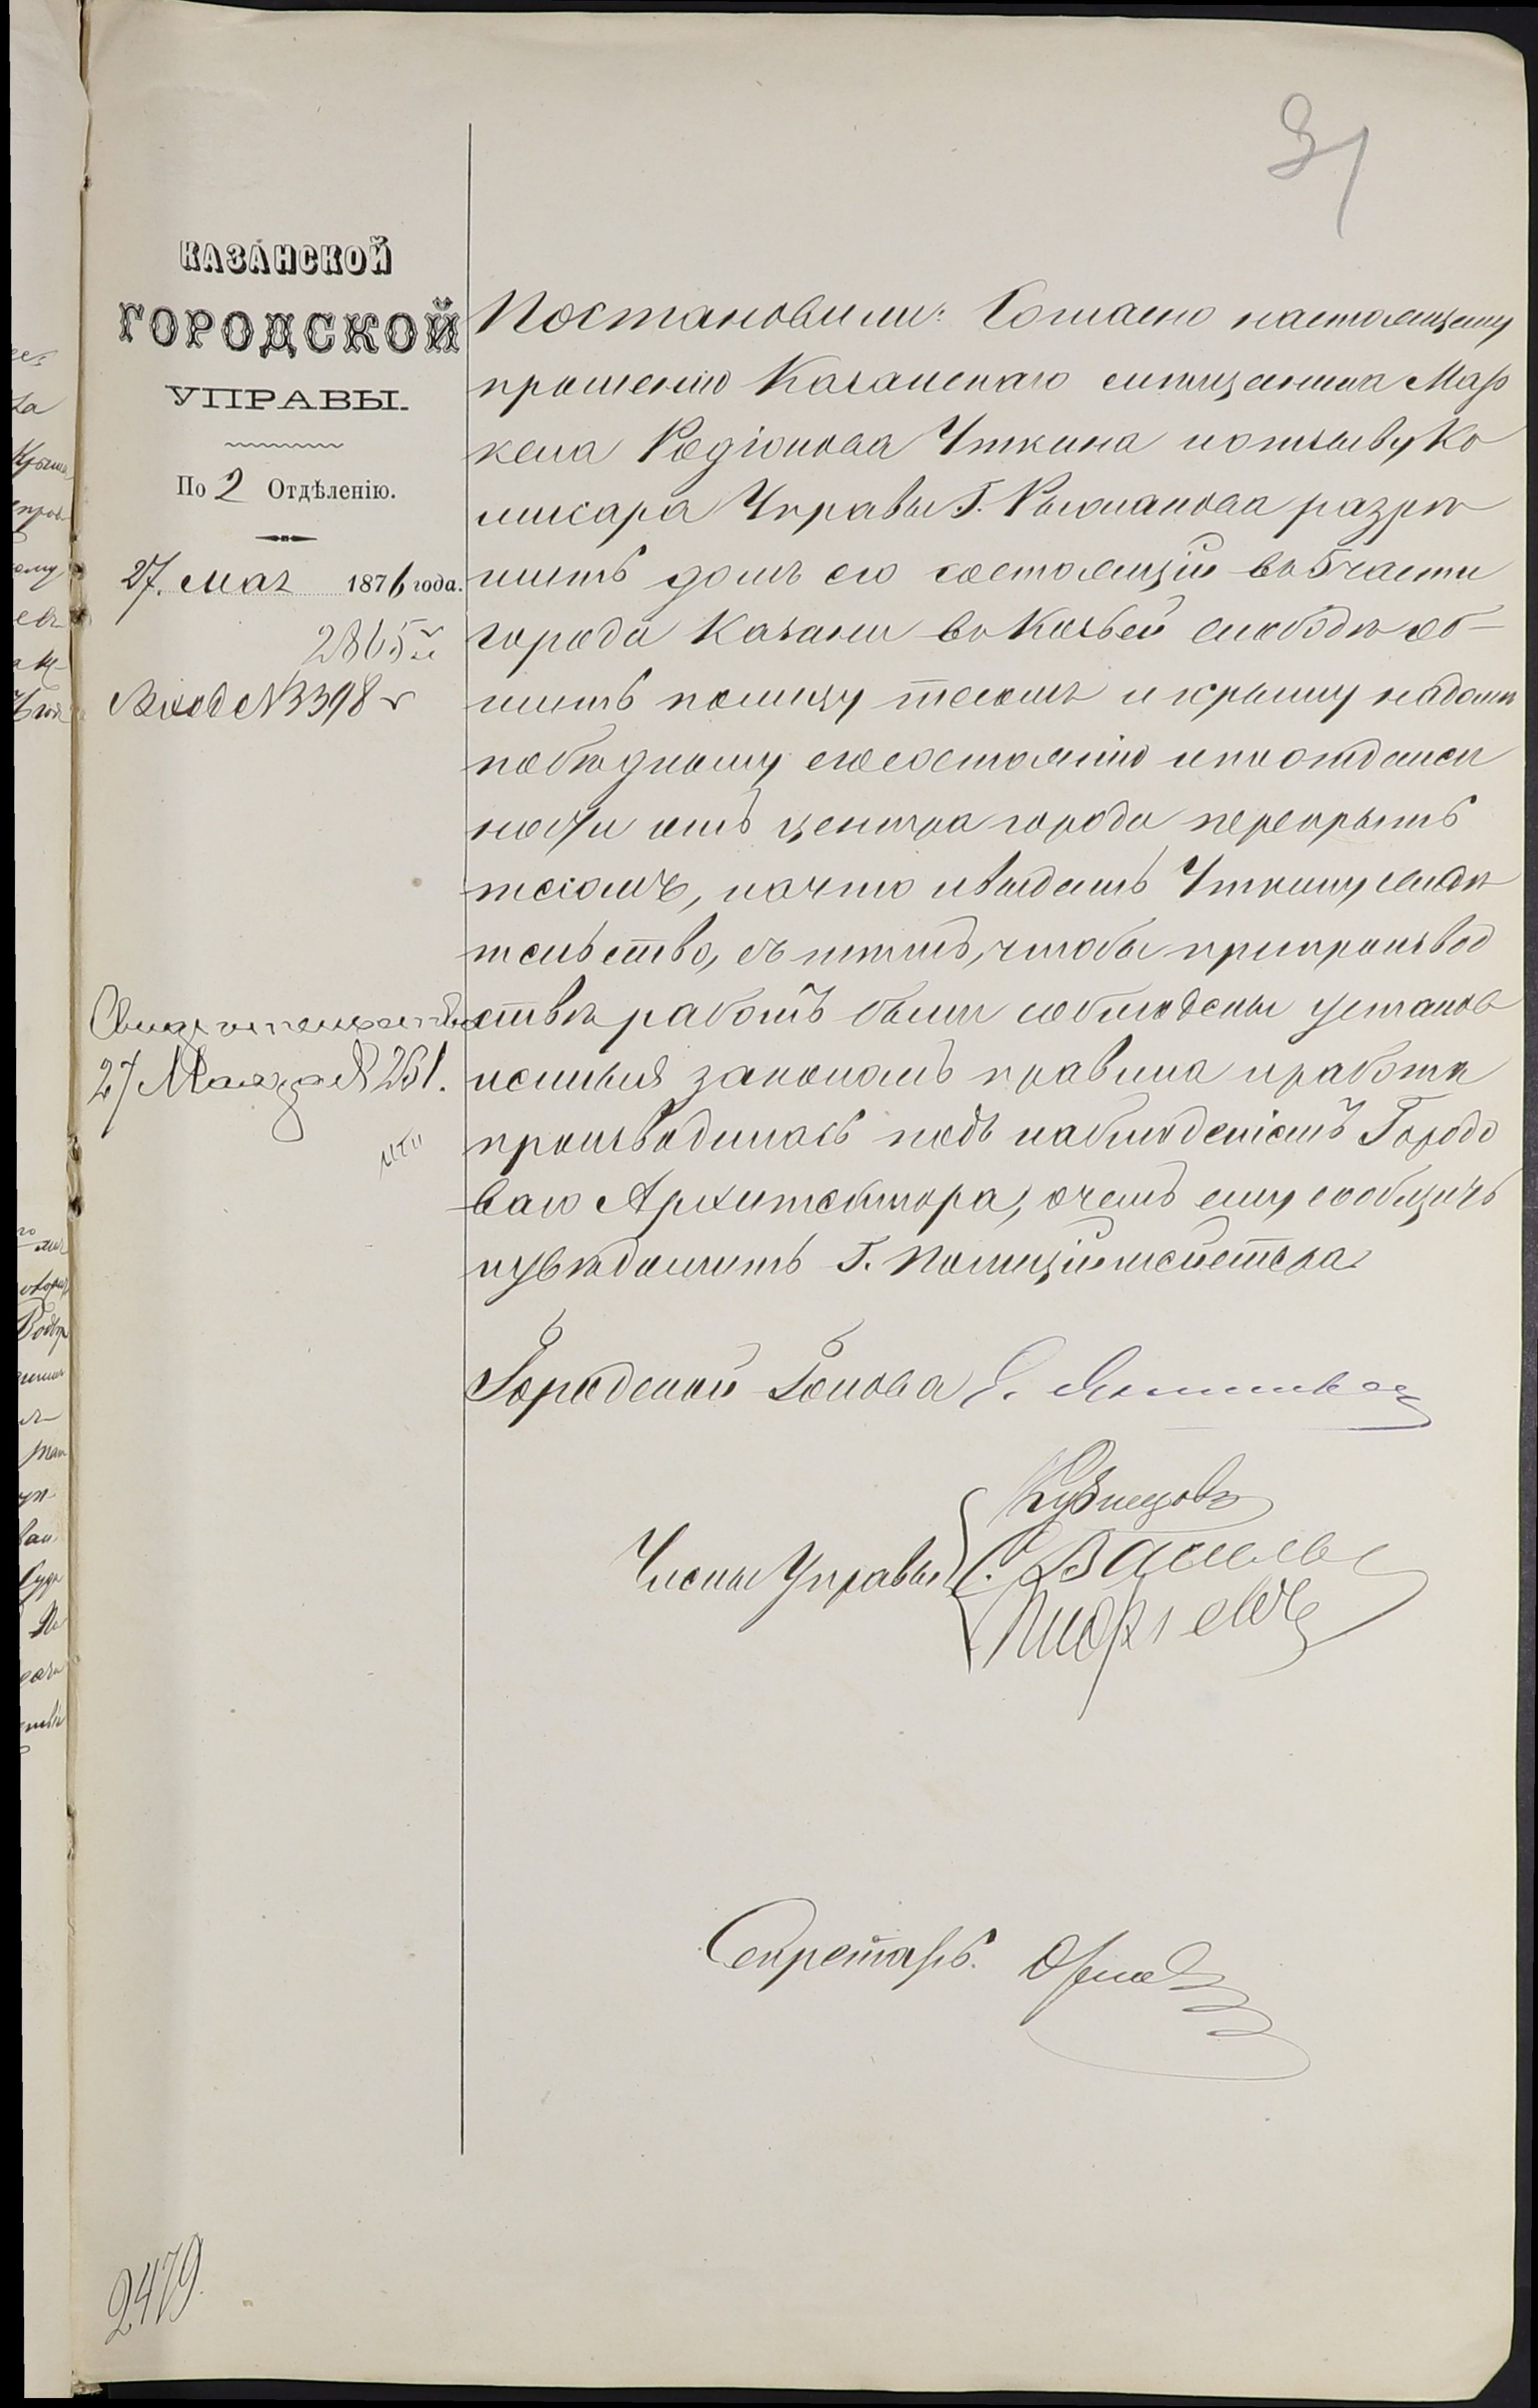 31
КАЗАНСКОЙ
ГОРОДСКОЙ
УПРАВЫ.
По 2 Отдѣленію.
27. мая 1876 года.
2865
Вход № 3398
Постановили: Согласно настоящему
прошенію Казанскаго мѣщанина Мар
кела Родіонова Уткина и отзыву Ко
мисара Управы Г. Рыжланова разрѣ
шить домъ его состоящій въ 5 части
города Казани въ Козьей слободѣ об-
шить полицу тесомъ и крышу на домѣ
по бѣдному его состоянію и по отдален
ности отъ центра города перекрыть
тесомъ, на что и выдать Уткину свидѣ
тельство, съ тѣмъ, чтобы при производ
ствѣ работъ были соблюдены установ
ленныя закономъ правила и работы
производилась подъ наблюденіемъ Городо
ваго Архитектора, о чемъ ему сообщить
и увѣдомить Г. Полиціймейстера
Свидѣтельство
27 Мая за № 251.
Городской Голова
Члены Управы
Кузнецовъ
С. Васильевъ
Секретарь. Орлов
2479.